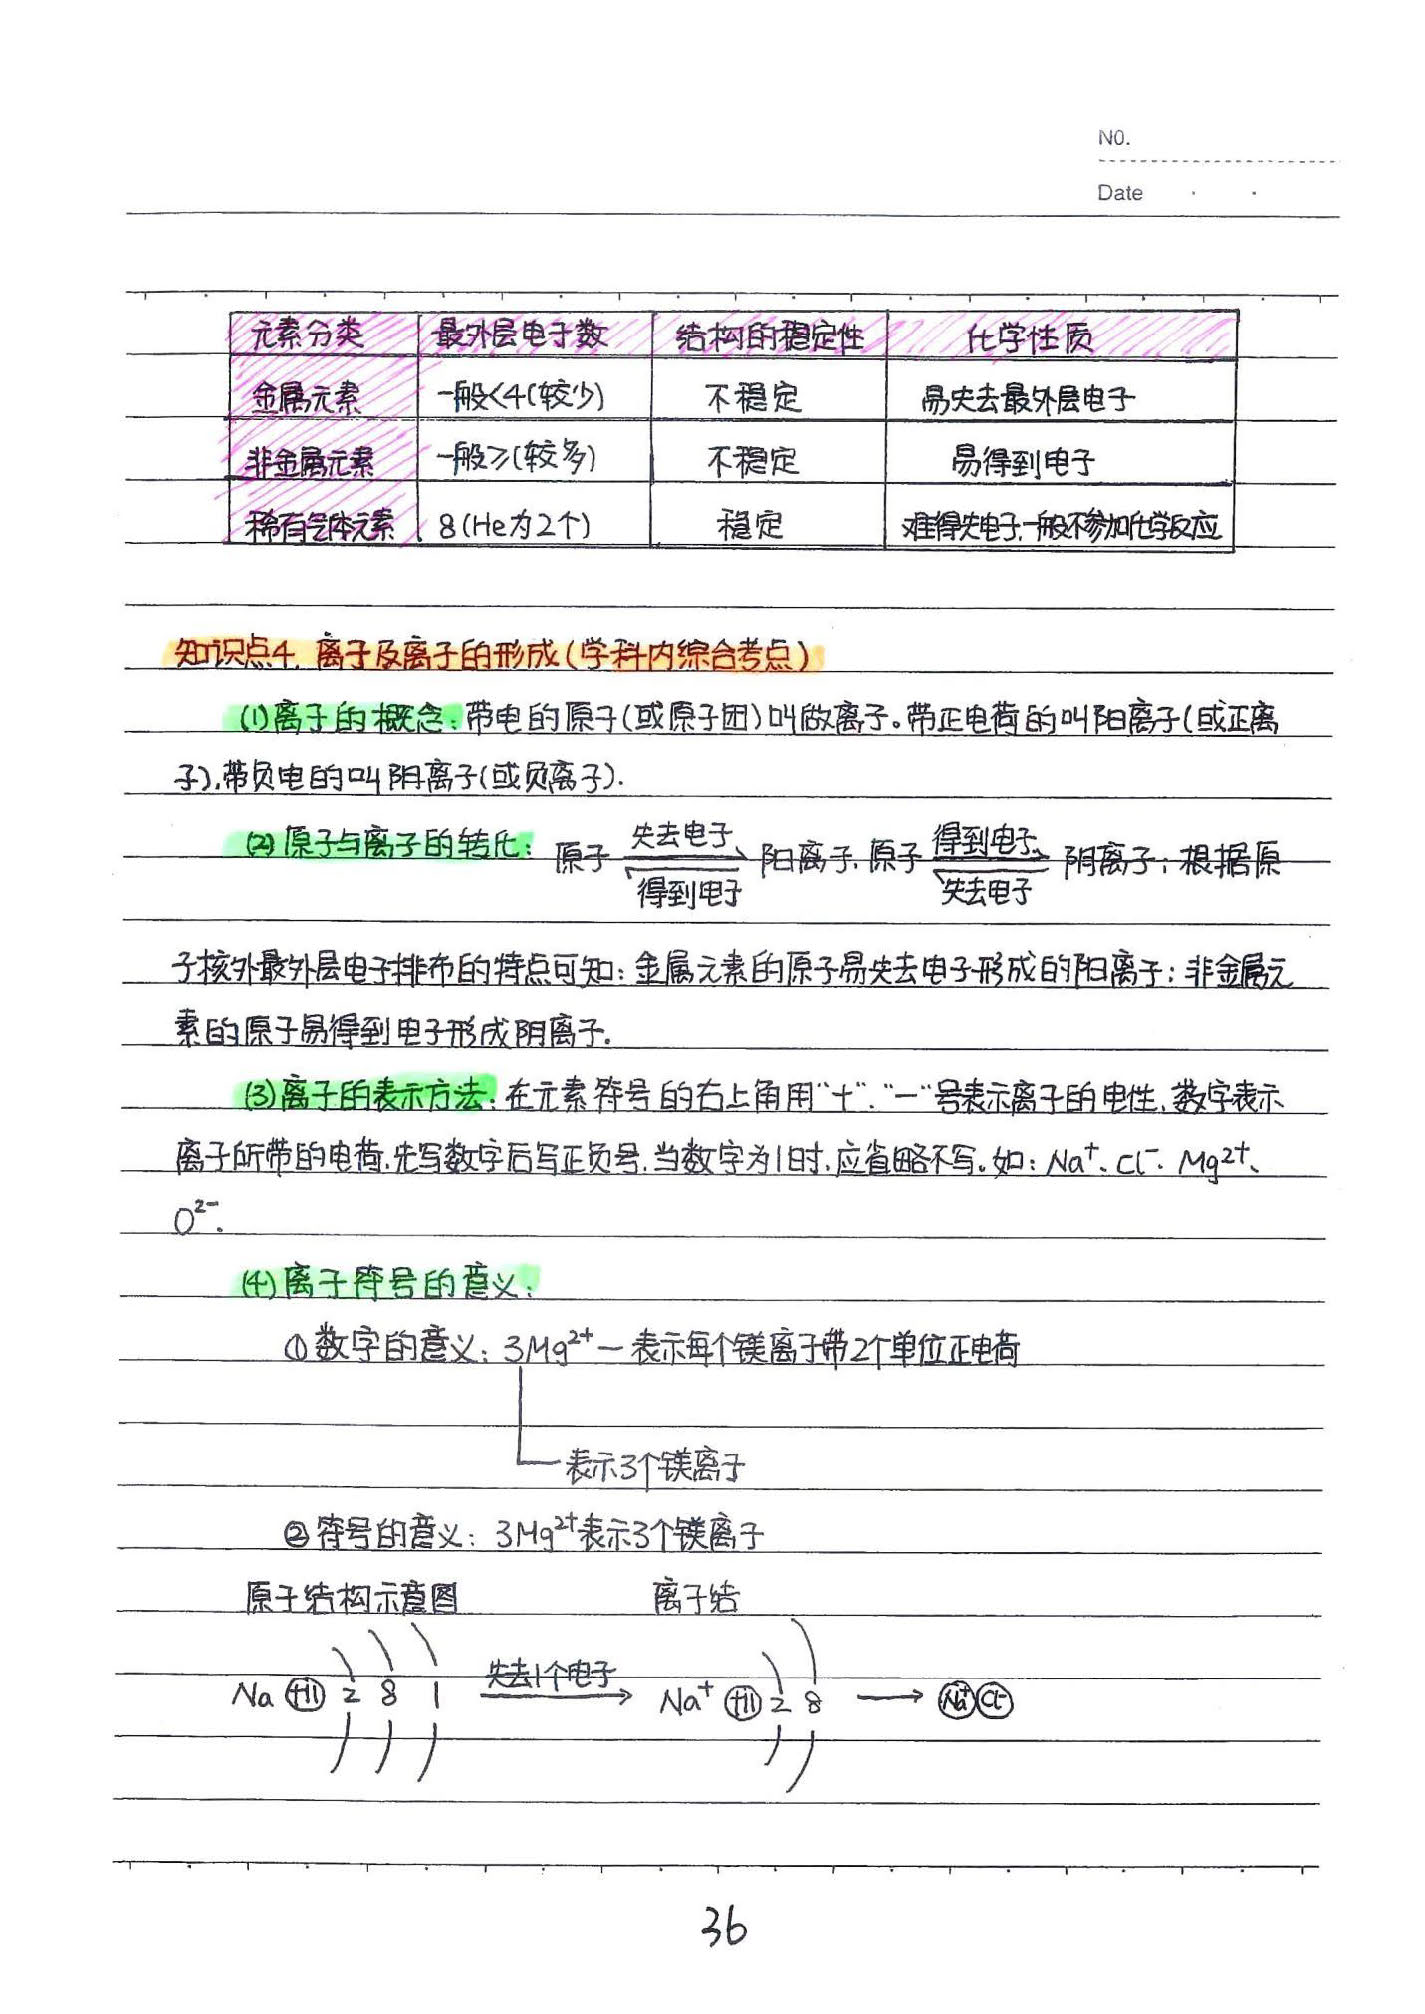 NO.
Date
元素分类 最外层电子数 结构的稳定性 化学性质
金属元素 一般<4(较少) 不稳定 易失去最外层电子
非金属元素 一般≥(较多) 不稳定 易得到电子
稀有气体元素 8(He为2个) 稳定 难得失电子,一般不参加化学反应
知识点4. 离子及离子的形成(学科内综合考点)
(1)离子的概念:带电的原子(或原子团)叫做离子。带正电荷的叫阳离子(或正离
子),带负电的叫阴离子(或负离子).
(2)原子与离子的转化: 原子 失去电子 得到电子 阳离子、原子 得到电子 失去电子 阴离子;根据原
子核外最外层电子排布的特点可知:金属元素的原子易失去电子形成的阳离子;非金属元
素的原子易得到电子形成阴离子.
(3)离子的表示方法:在元素符号的右上角用"+"、"-"号表示离子的电性,数字表示
离子所带的电荷,先写数字后写正负号,当数字为1时,应省略不写。如:Na⁺、Cl⁻、Mg²⁺、
O²⁻.
(4)离子符号的意义:
①数字的意义:3Mg²⁺—表示每个镁离子带2个单位正电荷
表示3个镁离子
②符号的意义:3Mg²⁺表示3个镁离子
原子结构示意图 离子结
Na +11 2 8 1 失去1个电子 Na⁺ +11 2 8 Na⁺ Cl⁻
36